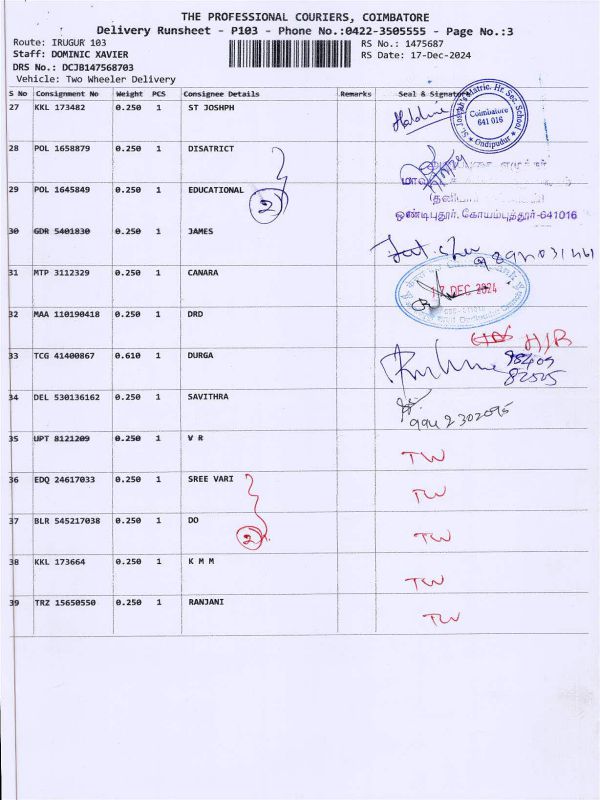 THE PROFESSIONAL COURIERS, COIMBATORE
Delivery Runsheet - P103 - Phone No.:0422-3505555 - Page No.:3
Route: IRUGUR 103 RS No.: 1475687
Staff: DOMINIC XAVIER RS Date: 17-Dec-2024
DRS No.: DCJB147568703
Vehicle: Two Wheeler Delivery
S No Consignment No Weight PCS Consignee Details Remarks Seal & Signature
27 KKL 173482 0.250 1 ST JOSHPH
St. Joseph's Matric. Hr. Sec. School
Coimbatore
641 016
Ondipudur
28 POL 1658879 0.250 1 DISATRICT
29 POL 1645849 0.250 1 EDUCATIONAL
2
ஒண்டிபுதூர், கோயம்புத்தூர்-641016
30 GDR 5401830 0.250 1 JAMES
31 MTP 3112329 0.250 1 CANARA
17 DEC 2024
32 MAA 110190418 0.250 1 DRD
H/B
33 TCG 41400867 0.610 1 DURGA
98409
82525
34 DEL 530136162 0.250 1 SAVITHRA
9942302095
35 UPT 8121209 0.250 1 V R TW
36 EDQ 24617033 0.250 1 SREE VARI TW
37 BLR 545217038 0.250 1 DO 2 TW
38 KKL 173664 0.250 1 K M M TW
39 TRZ 15650550 0.250 1 RANJANI TW